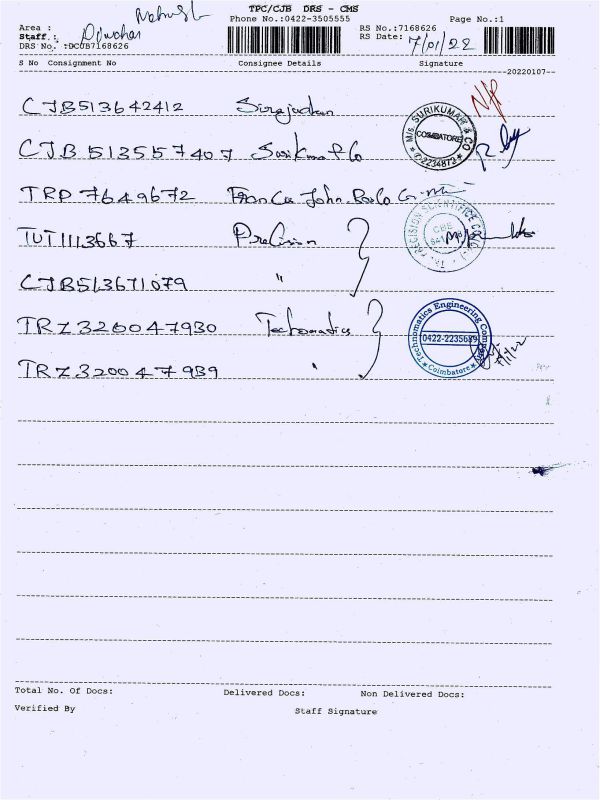 TPC/CJB DRS - CMS
Phone No.:0422-3505555
Page No.:1
Area :
Staff.:
DRS No. :DCUB7168626
RS No.:7168626
RS Date: 7/01/22
S No Consignment No Consignee Details Signature
20220107
CJB513642412
NP
CJB513557407 Surikumar & Co
M/s. SURIKUMAR & CO
COIMBATORE
2234873
TRP7649672 Francis John
TUT1113667 Precision
PRECISION SCIENTIFIC CO
CBE
CJB513671079 "
TRZ3200047930 Techomatics
Technomatics Engineering Company
0422-2235689
Coimbatore
7/1/22
TRZ3200047939 "
Total No. Of Docs: Delivered Docs: Non Delivered Docs:
Verified By Staff Signature